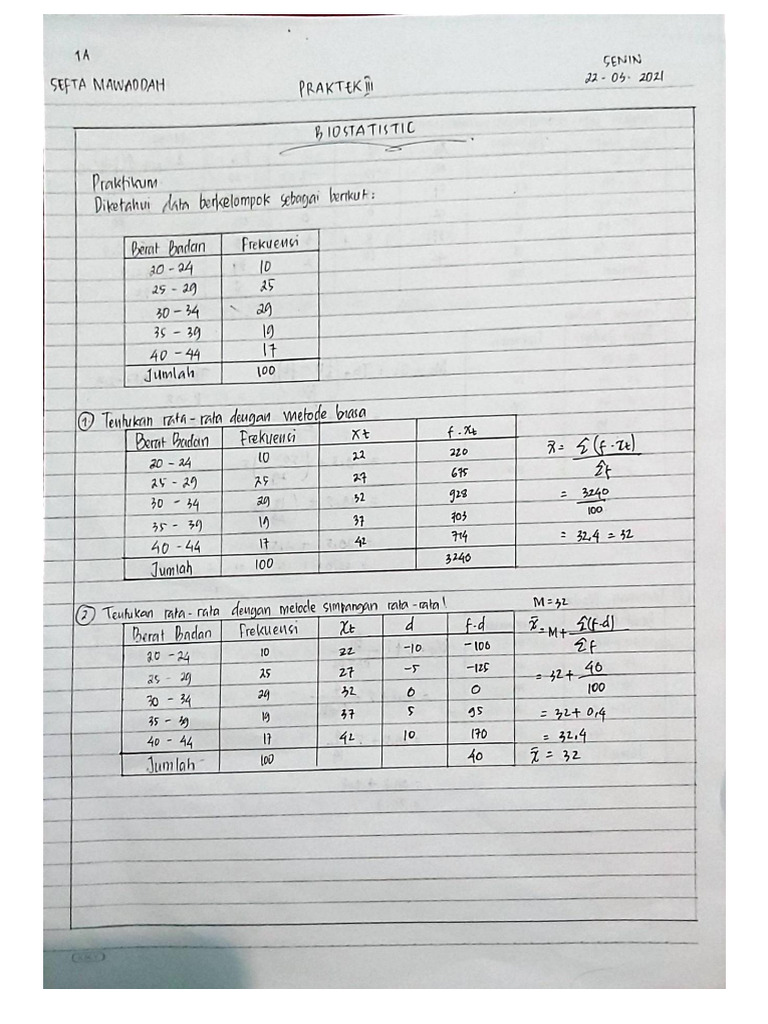 1A
SENIN
SEFTA MAWADDAH PRAKTEK III 22-03-2021
BIOSTATISTIC
Praktikum
Diketahui data berkelompok sebagai berikut:
Berat Badan Frekuensi
20-24 10
25-29 25
30-34 29
35-39 19
40-44 17
Jumlah 100
① Tentukan rata-rata dengan metode biasa
Berat Badan Frekuensi xt f.xt
20-24 10 22 220
25-29 25 27 675
30-34 29 32 928
35-39 19 37 703
40-44 17 42 714
Jumlah 100 3240
x̄ = Σ(f.xt)
Σf
= 3240
100
= 32,4 = 32
② Tentukan rata-rata dengan metode simpangan rata-rata!
Berat Badan Frekuensi xt d f.d
20-24 10 22 -10 -100
25-29 25 27 -5 -125
30-34 29 32 0 0
35-39 19 37 5 95
40-44 17 42 10 170
Jumlah 100 40
M=32
x̄ = M + Σ(f.d)
Σf
= 32 + 40
100
= 32 + 0,4
= 32,4
x̄ = 32